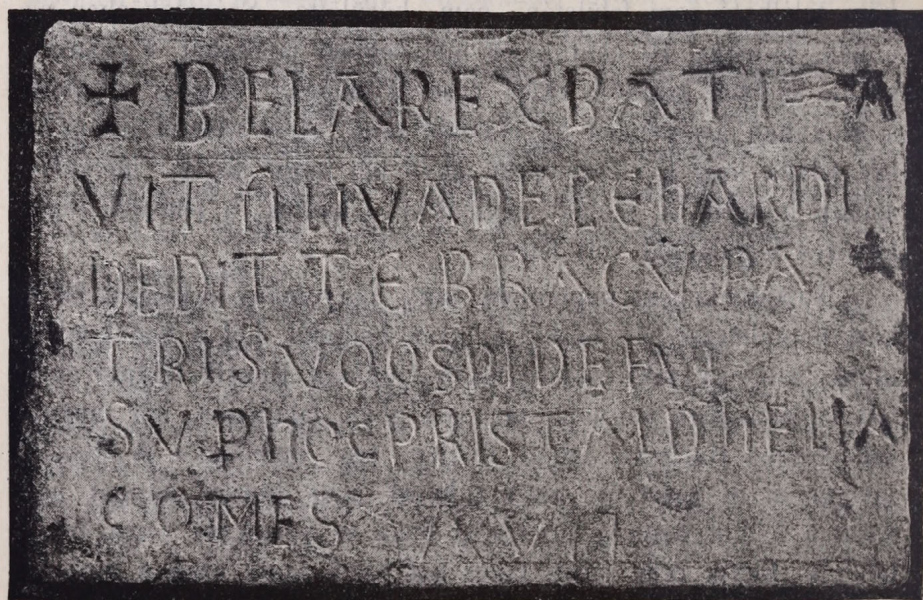 ✠ BELAREXBATIZA
VIT filIVADELEhARDI
DEDIT TEBRACV̄ PĀ
TRISVO OSPI DEFVI
SVP hOC PRISTALD hELIA
COMES